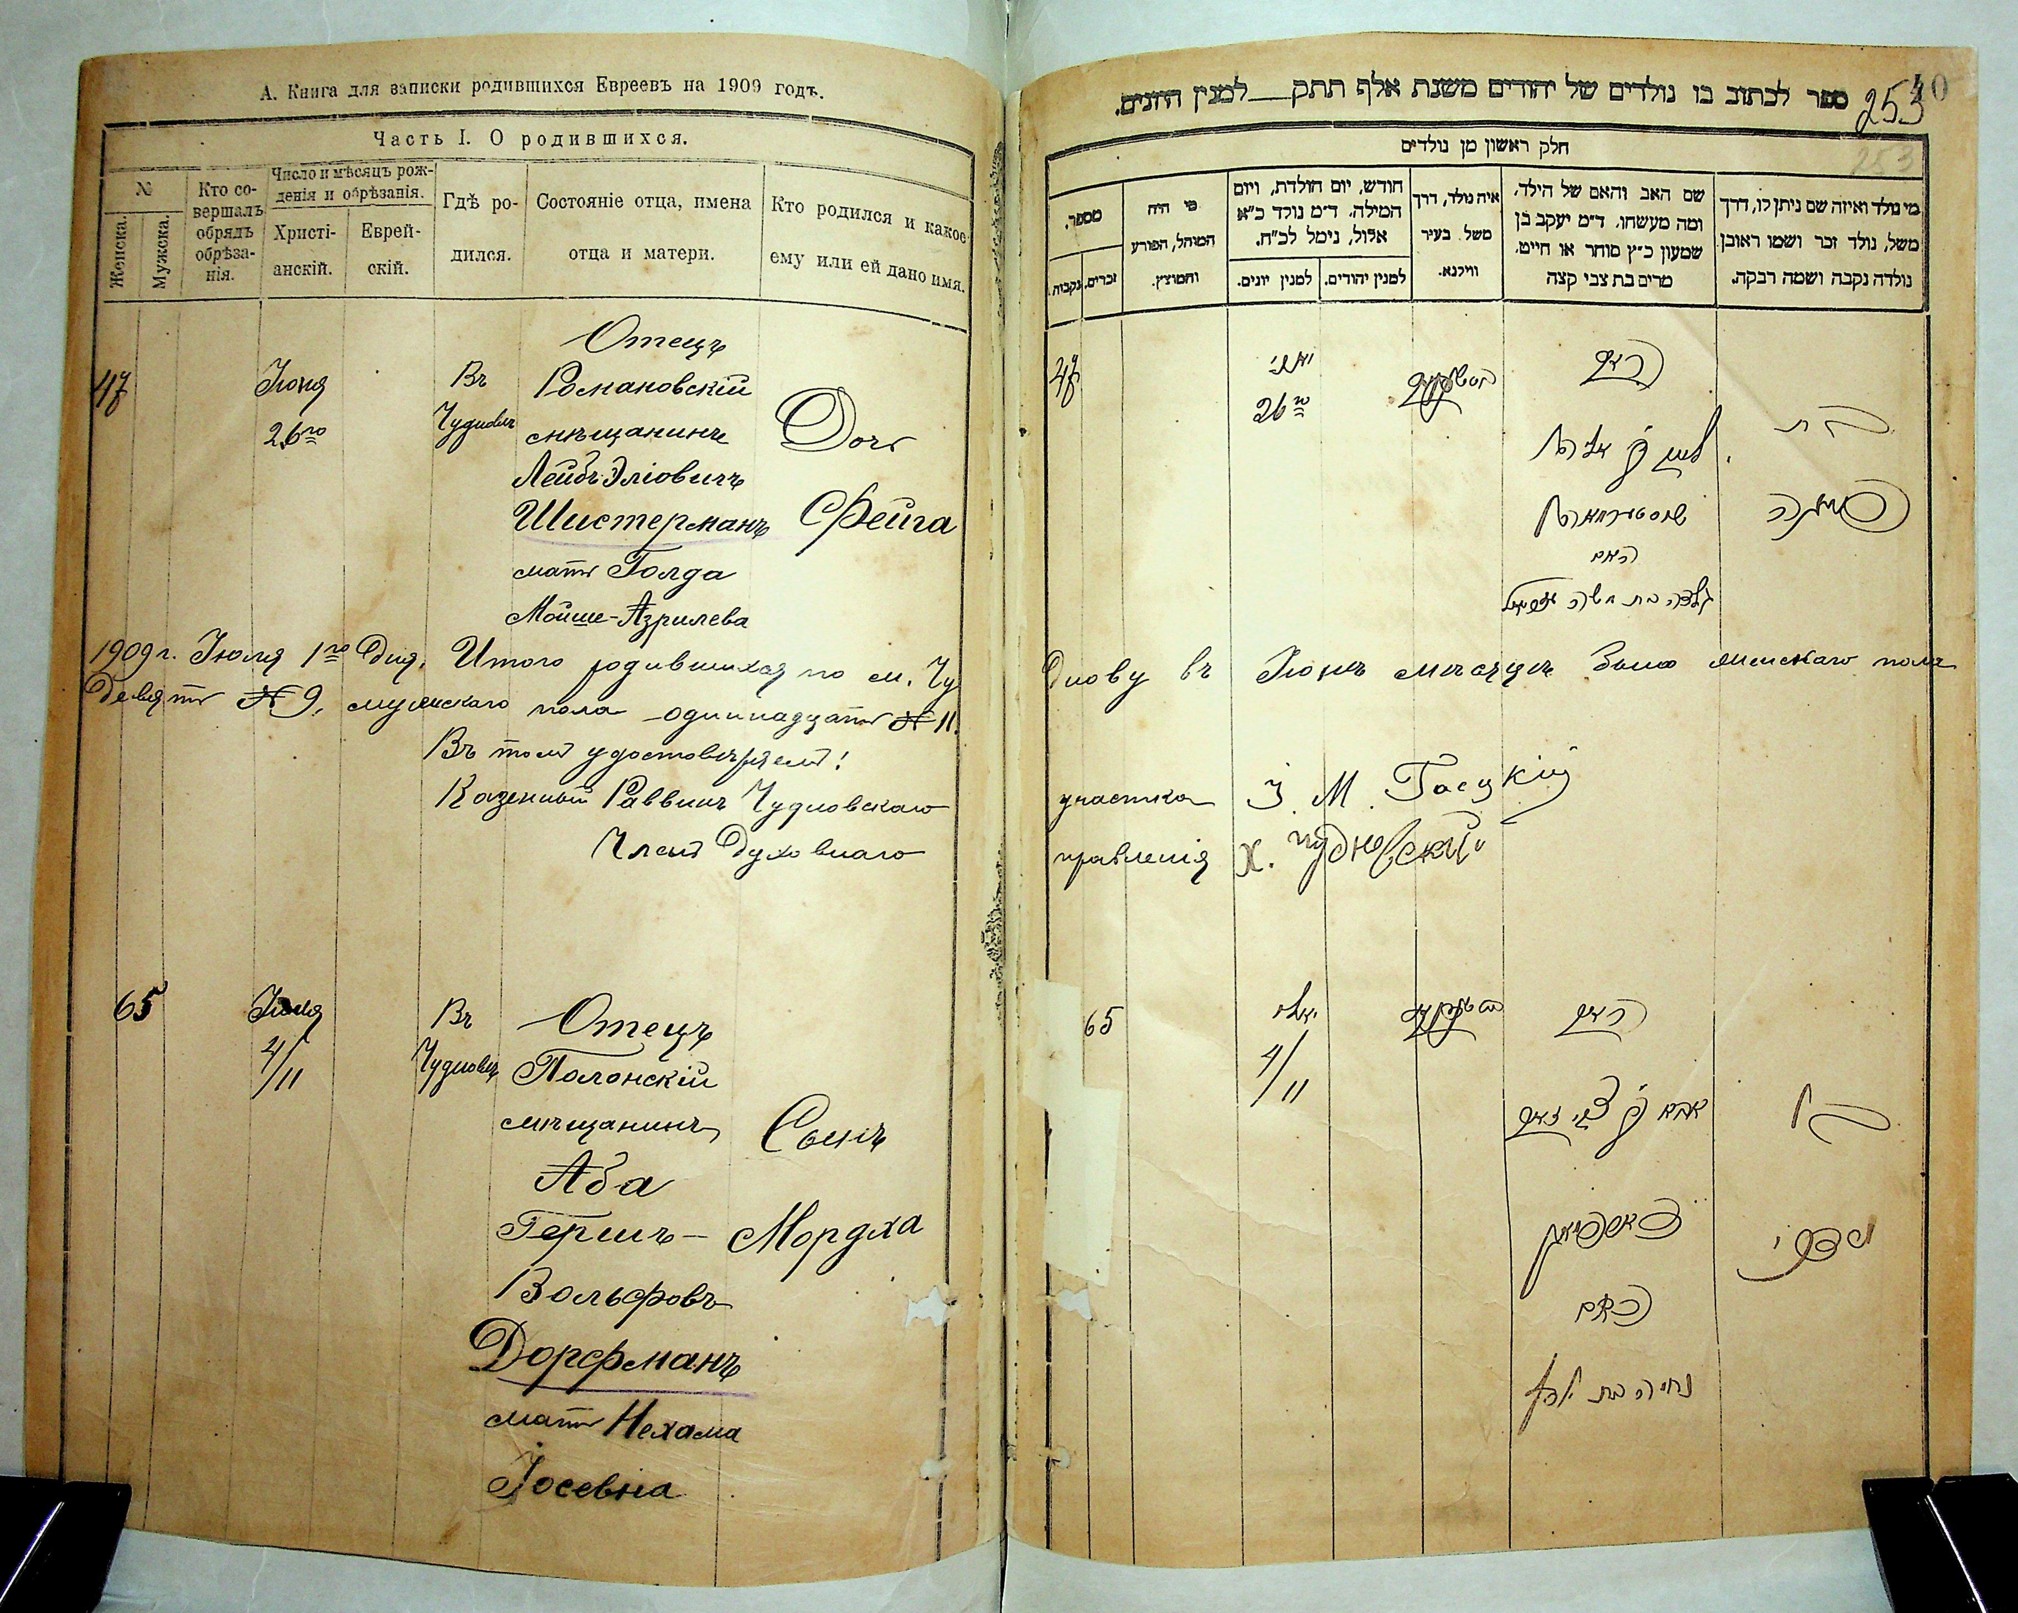 А. Книга для записки родившихся Евреевъ на 1909 годъ.
Часть I. О родившихся.
№
Женска.
Мужска.
Кто со-
вершалъ
обрядъ
обрѣза-
нія.
Число и мѣсяцъ рож-
денія и обрѣзанія.
Христі-
анскій.
Еврей-
скій.
Гдѣ ро-
дился.
Состояніе отца, имена
отца и матери.
Кто родился и какое
ему или ей дано имя.
47
Іюня
26го
Въ
Чудновѣ
Отецъ
Романовскій
мѣщанинъ
Лейбъ Эліовичъ
Шистерманъ
мать Голда
Мойше-Азрилева
Дочь
Фейга
1909 г. Іюля 1го дня. Итого родившихся по м. Чу
девять № 9, мужскаго пола одиннадцать № 11.
Въ томъ удостовѣряемъ!
Казенный Раввинъ Чудновскаго
Членъ Духовнаго
65
Іюля
4/11
Въ
Чудновѣ
Отецъ
Полонскій
мѣщанинъ
Аба
Гершъ-
Вольфовъ
Дорфманъ
мать Нехама
Іосевна
Сынъ
Мордха
253
40
253
ספר לכתוב בו נולדים של יהודים משנת אלף תתק__למנין היונים.
חלק ראשון מן נולדים
מי נולד ואיזה שם ניתן לו, דרך
משל, נולד זכר ושמו ראובן
נולדה נקבה ושמה רבקה.
שם האב והאם של הילד,
ומה מעשהו. ד״מ יעקב בן
שמעון כ״ץ סוחר או חייט,
מרים בת צבי קצה
איה נולד, דרך
משל בעיר
ווילנא.
חודש, יום הולדת, ויום
המילה. ד״מ נולד כ״א
אלול, נימל לכ״ח.
למנין יהודים.
למנין יונים.
מי היה
המוהל, הפורע
והמוצץ.
מספר.
זכרים.
נקבות.
47
יוני
26го
האב
האם
בת
днову въ Іюнѣ мѣсяцѣ было женскаго пола
участка І. М. Гасцкій
правленія Х. Чудновскій
65
יולי
4/11
האב
אבא בן צבי זאב
דארפמאן
האם
בן
מרדכי